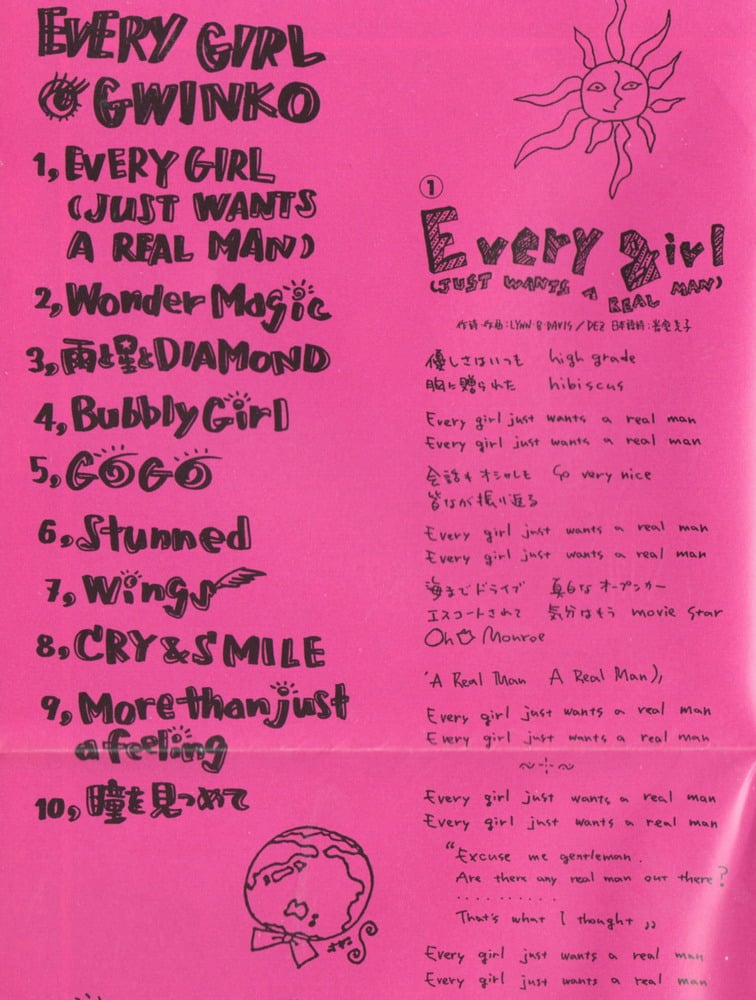 EVERY GIRL
GWINKO
1, EVERY GIRL
(JUST WANTS
A REAL MAN)
2, Wonder Magic
3, 雨と星とDIAMOND
4, Bubbly Girl
5, GOGO
6, Stunned
7, Wings
8, CRY & SMILE
9, More than just
a feeling
10, 瞳を見つめて
①
Every girl
(JUST WANTS A REAL MAN)
作詩・作曲:LYNN・B・DAVIS/DEZ 日本語詩:岩室先子
優しさはいつも high grade
胸に贈られた hibiscus
Every girl just wants a real man
Every girl just wants a real man
会話も オシャレも So very nice
皆なが振り返る
Every girl just wants a real man
Every girl just wants a real man
海までドライブ 真白な オープンカー
エスコートされて 気分はもう movie star
Oh Monroe
(A Real Man A Real Man),
Every girl just wants a real man
Every girl just wants a real man
Every girl just wants a real man
Every girl just wants a real man
"Excuse me gentleman.
Are there any real man out there?
..........
That's what I thought„
Every girl just wants a real man
Every girl just wants a real man